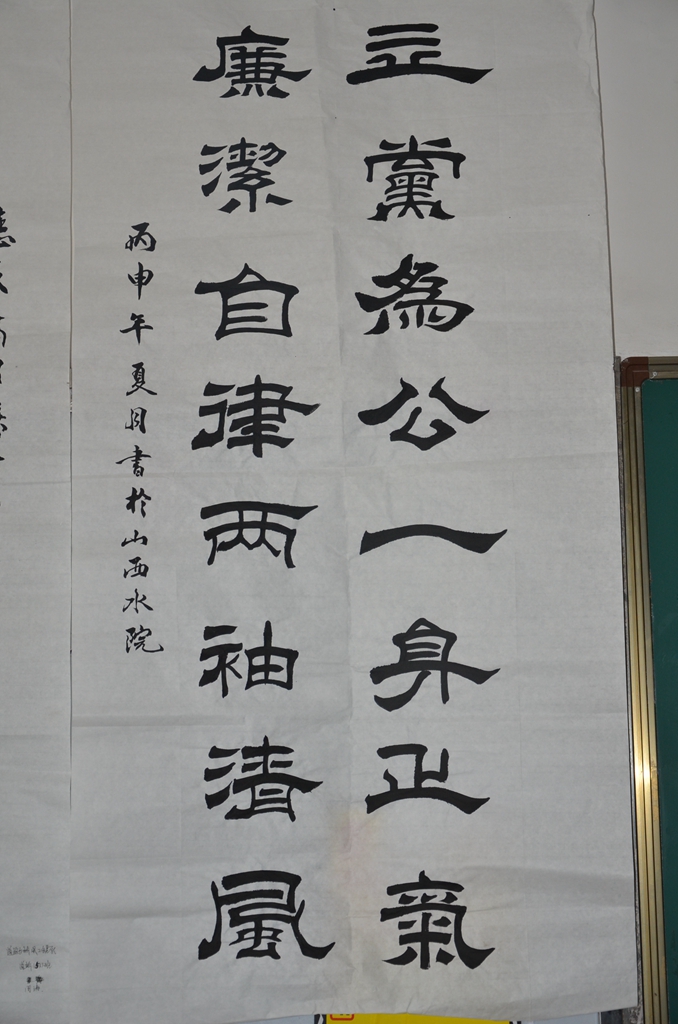 立黨為公一身正氣
廉潔自律两袖清風
丙申年夏月書於山西水院